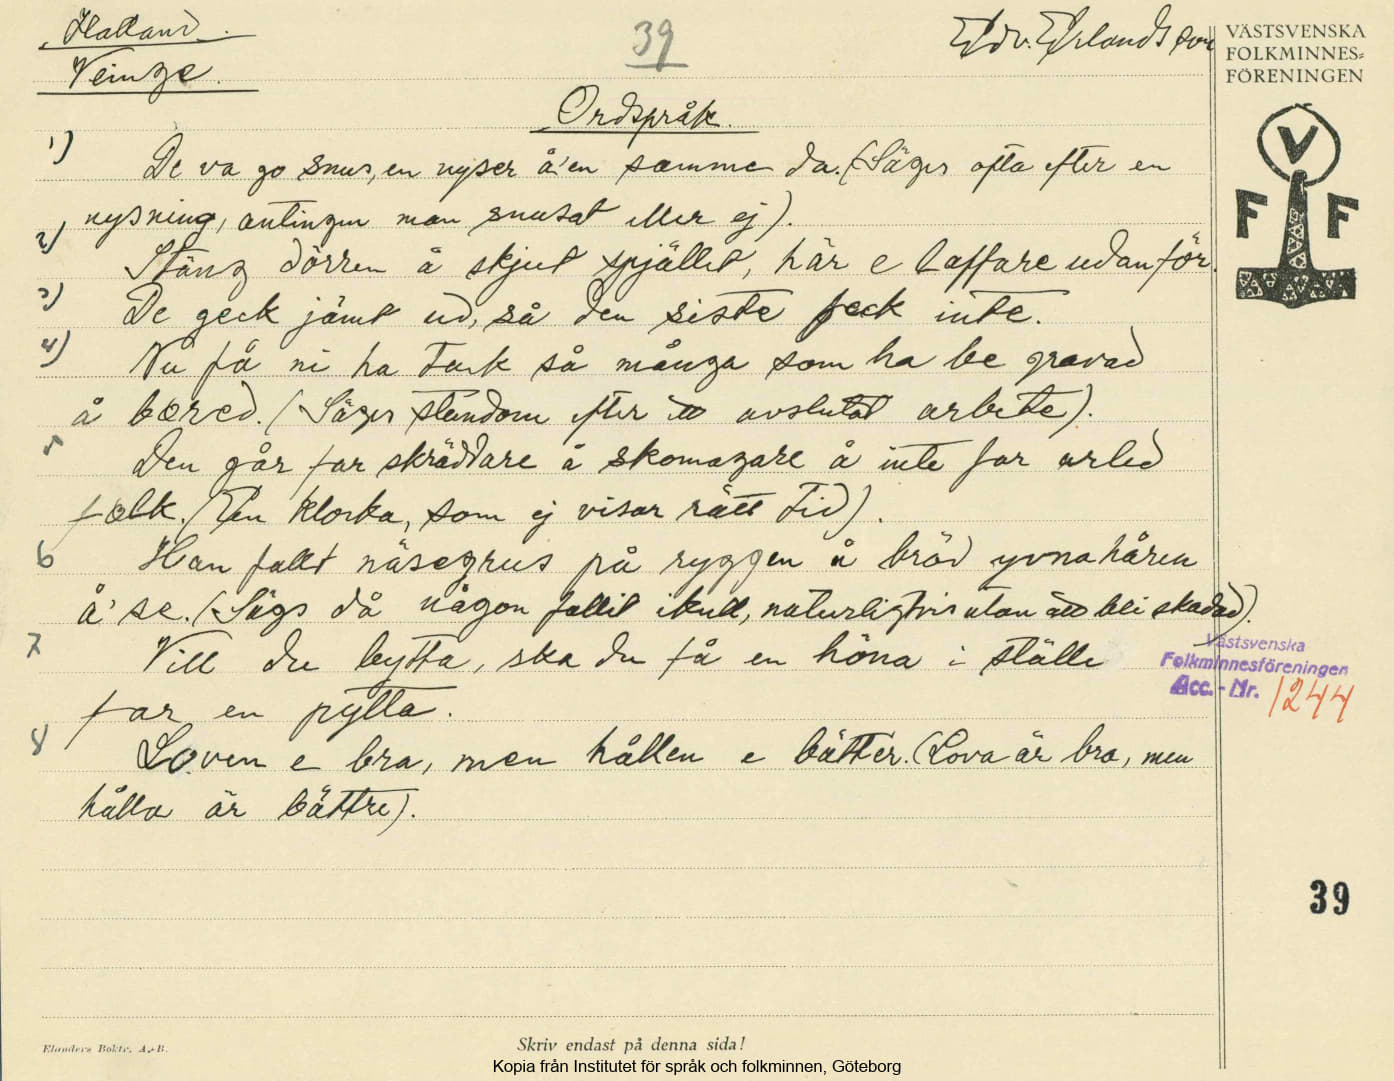 Halland.
Veinge.
39
Edv. Erlandsson
VÄSTSVENSKA
FOLKMINNES=
FÖRENINGEN
V
F F
Ordspråk.
1) De va go snus, en nyser å'en samme da. (Säges ofta efter en
nysning, antingen man snusat eller ej).
2) Stäng dörren å skjut spjället, här e laffare udanför.
3) De geck jämt ud, så den siste feck inte.
4) Nu få ni ha tack så många som ha be gravad
å bæred. (Säges stundom efter ett avslutat arbete).
5 Den går far skräddare å skomagare å inte far arlid
fælk. (En klocka, som ej visar rätt tid).
6 Han fallt näsegrus på ryggen å bröd yvnahåren
å' se. (Sägs då någon fallit ikull, naturligtvis utan att bli skadad).
7 Vill du bytta, ska du få en höna i ställe
far en pytta.
8 Loven e bra, men hållen e bätter. (Lova är bra, men
hålla är bättre).
Västsvenska
Folkminnesföreningen
Acc. - Nr. 1244
39
Elanders Boktr. A.-B.
Skriv endast på denna sida!
Kopia från Institutet för språk och folkminnen, Göteborg